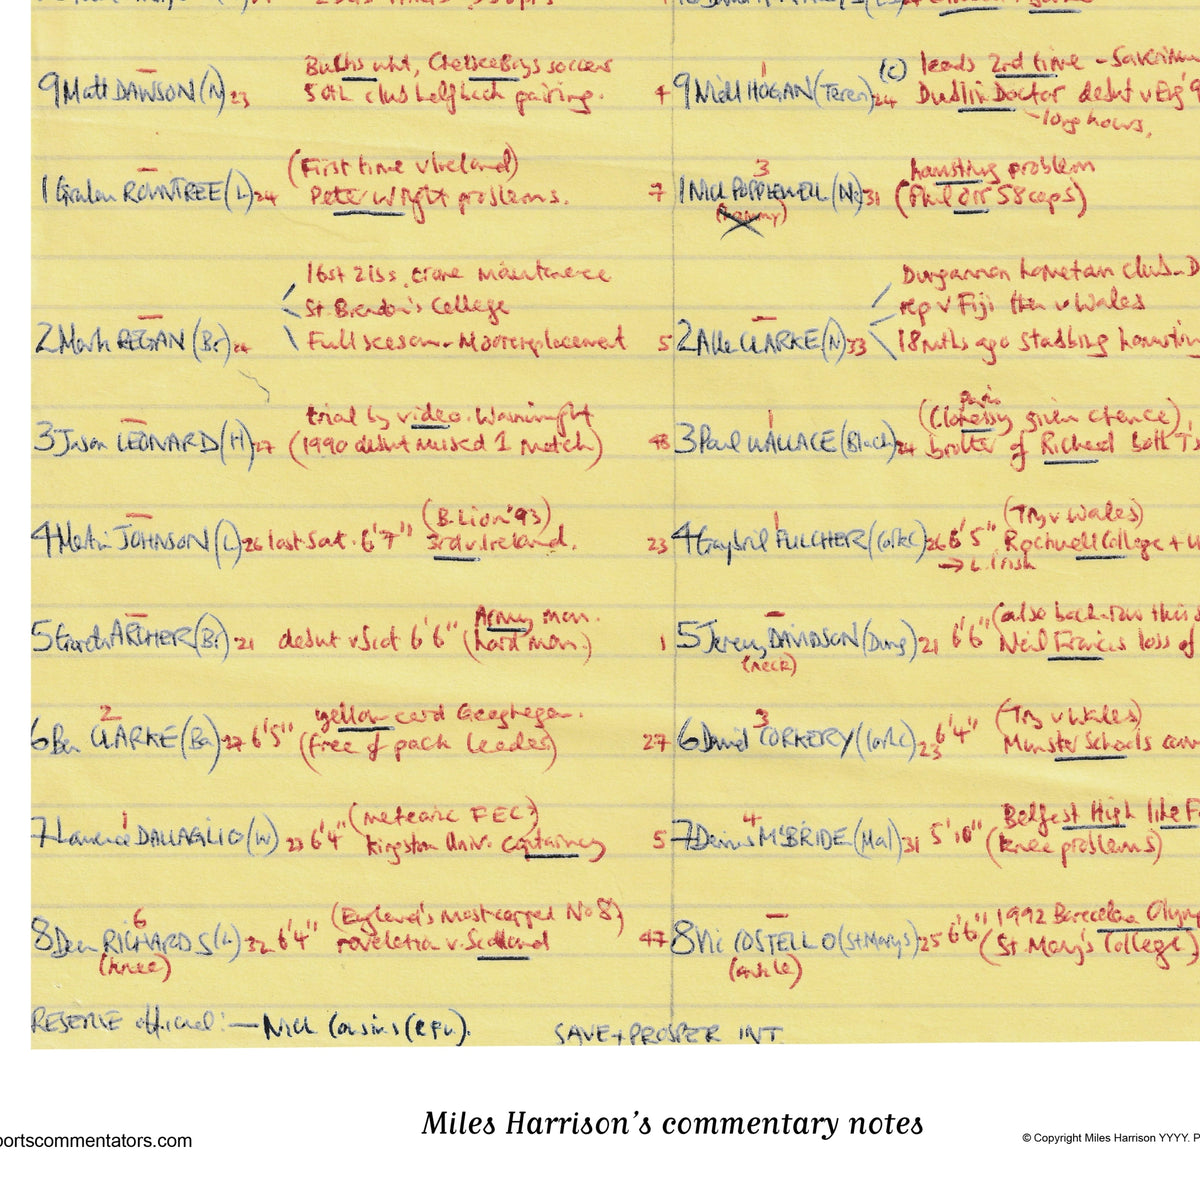 9 Matt DAWSON (N) 23 Bucks wht, Chelsea Boys soccer
50th club half back pairing. 4
9 Niall HOGAN (Teren) 24 (c) leads 2nd time -
Dublin Doctor debut v Eng '9
long hours,
1 Graham ROWNTREE (L) 24 (First time v Ireland)
Peter Wright problems. 7
1 Nick POPPLEWELL (N) 31 3 hamstring problem
(hammy) (Phil Orr 58 caps)
2 Mark REGAN (Br) 24 16st 2lbs. crane maintenance
St. Brendan's College
Full season - Moore replacement 5
2 Alle CLARKE (N) 33 Dungannon hometown club - D
rep v Fiji then v Wales
18 mths ago stabbing
3 Jason LEONARD (H) 27 trial by video. Wainwright
(1990 debut missed 1 match) 48
3 Paul WALLACE (Black) 24 1 (Clohessy given chance)
brother of Richard both
4 Martin JOHNSON (L) 26 last Sat. 6'7" (B. Lion '93)
3rd v. Ireland. 23
4 Gaybriel FULCHER (CorkC) 26 1 6'5" (Try v Wales)
Rockwell College +
→ L. Irish
5 Garath ARCHER (Br) 21 debut v Scot 6'6" Army man.
(hard man.) 1
5 Jeremy DAVIDSON (Dung) 21 6'6" (also back-row this
(neck) Neil Francis loss of
6 Ben CLARKE (Ba) 27 2 6'5" yellow card Geoghegan.
(free of pack leader) 27
6 David CORKERY (CorkC) 23 3 6'4" (Try v Wales)
Munster Schools
7 Lawrence DALLAGLIO (W) 23 1 6'4" (meteoric
Kingston Univ. captaincy 5
7 Denis McBRIDE (Mal) 31 4 5'10" Belfast High like
(knee problems)
8 Dean RICHARDS (L) 32 6 6'4" (England's most capped No 8)
(knee) revelation v. Scotland 47
8 Vic COSTELLO (St Marys) 25 6'6" 1992 Barcelona Olym
(ankle) (St. Mary's College)
RESERVE official: — Nick Cousins (RFU). SAVE + PROSPER INT
Miles Harrison's commentary notes
ortscommentators.com
© Copyright Miles Harrison YYYY. P